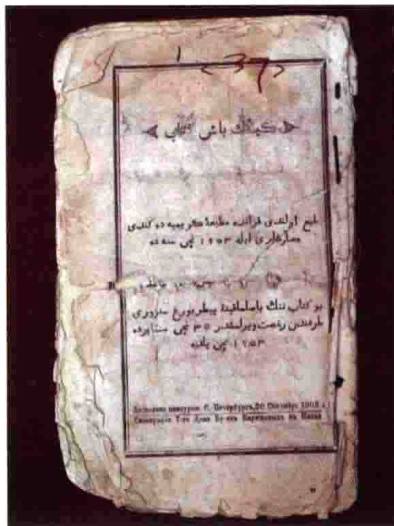 كيسك باش كتاب
طبع اولندى قزانده مطبعهٔ كريميه ده كندى
مصارفلرى ايله ١٩٠٣ نچى سنه ده
بو كتاب ننك باصلماقينه پيطربورغ سنزورى
طرفندن رخصت ويرلمشدر ٣٠ نچى سنتابرده
١٩٠٣ نچى يلده
Дозволено цензурою. С. Петербургъ, Сентября 1903 г.
Типографія Т-го Дома Бр-евъ Каримовыхъ въ Казани